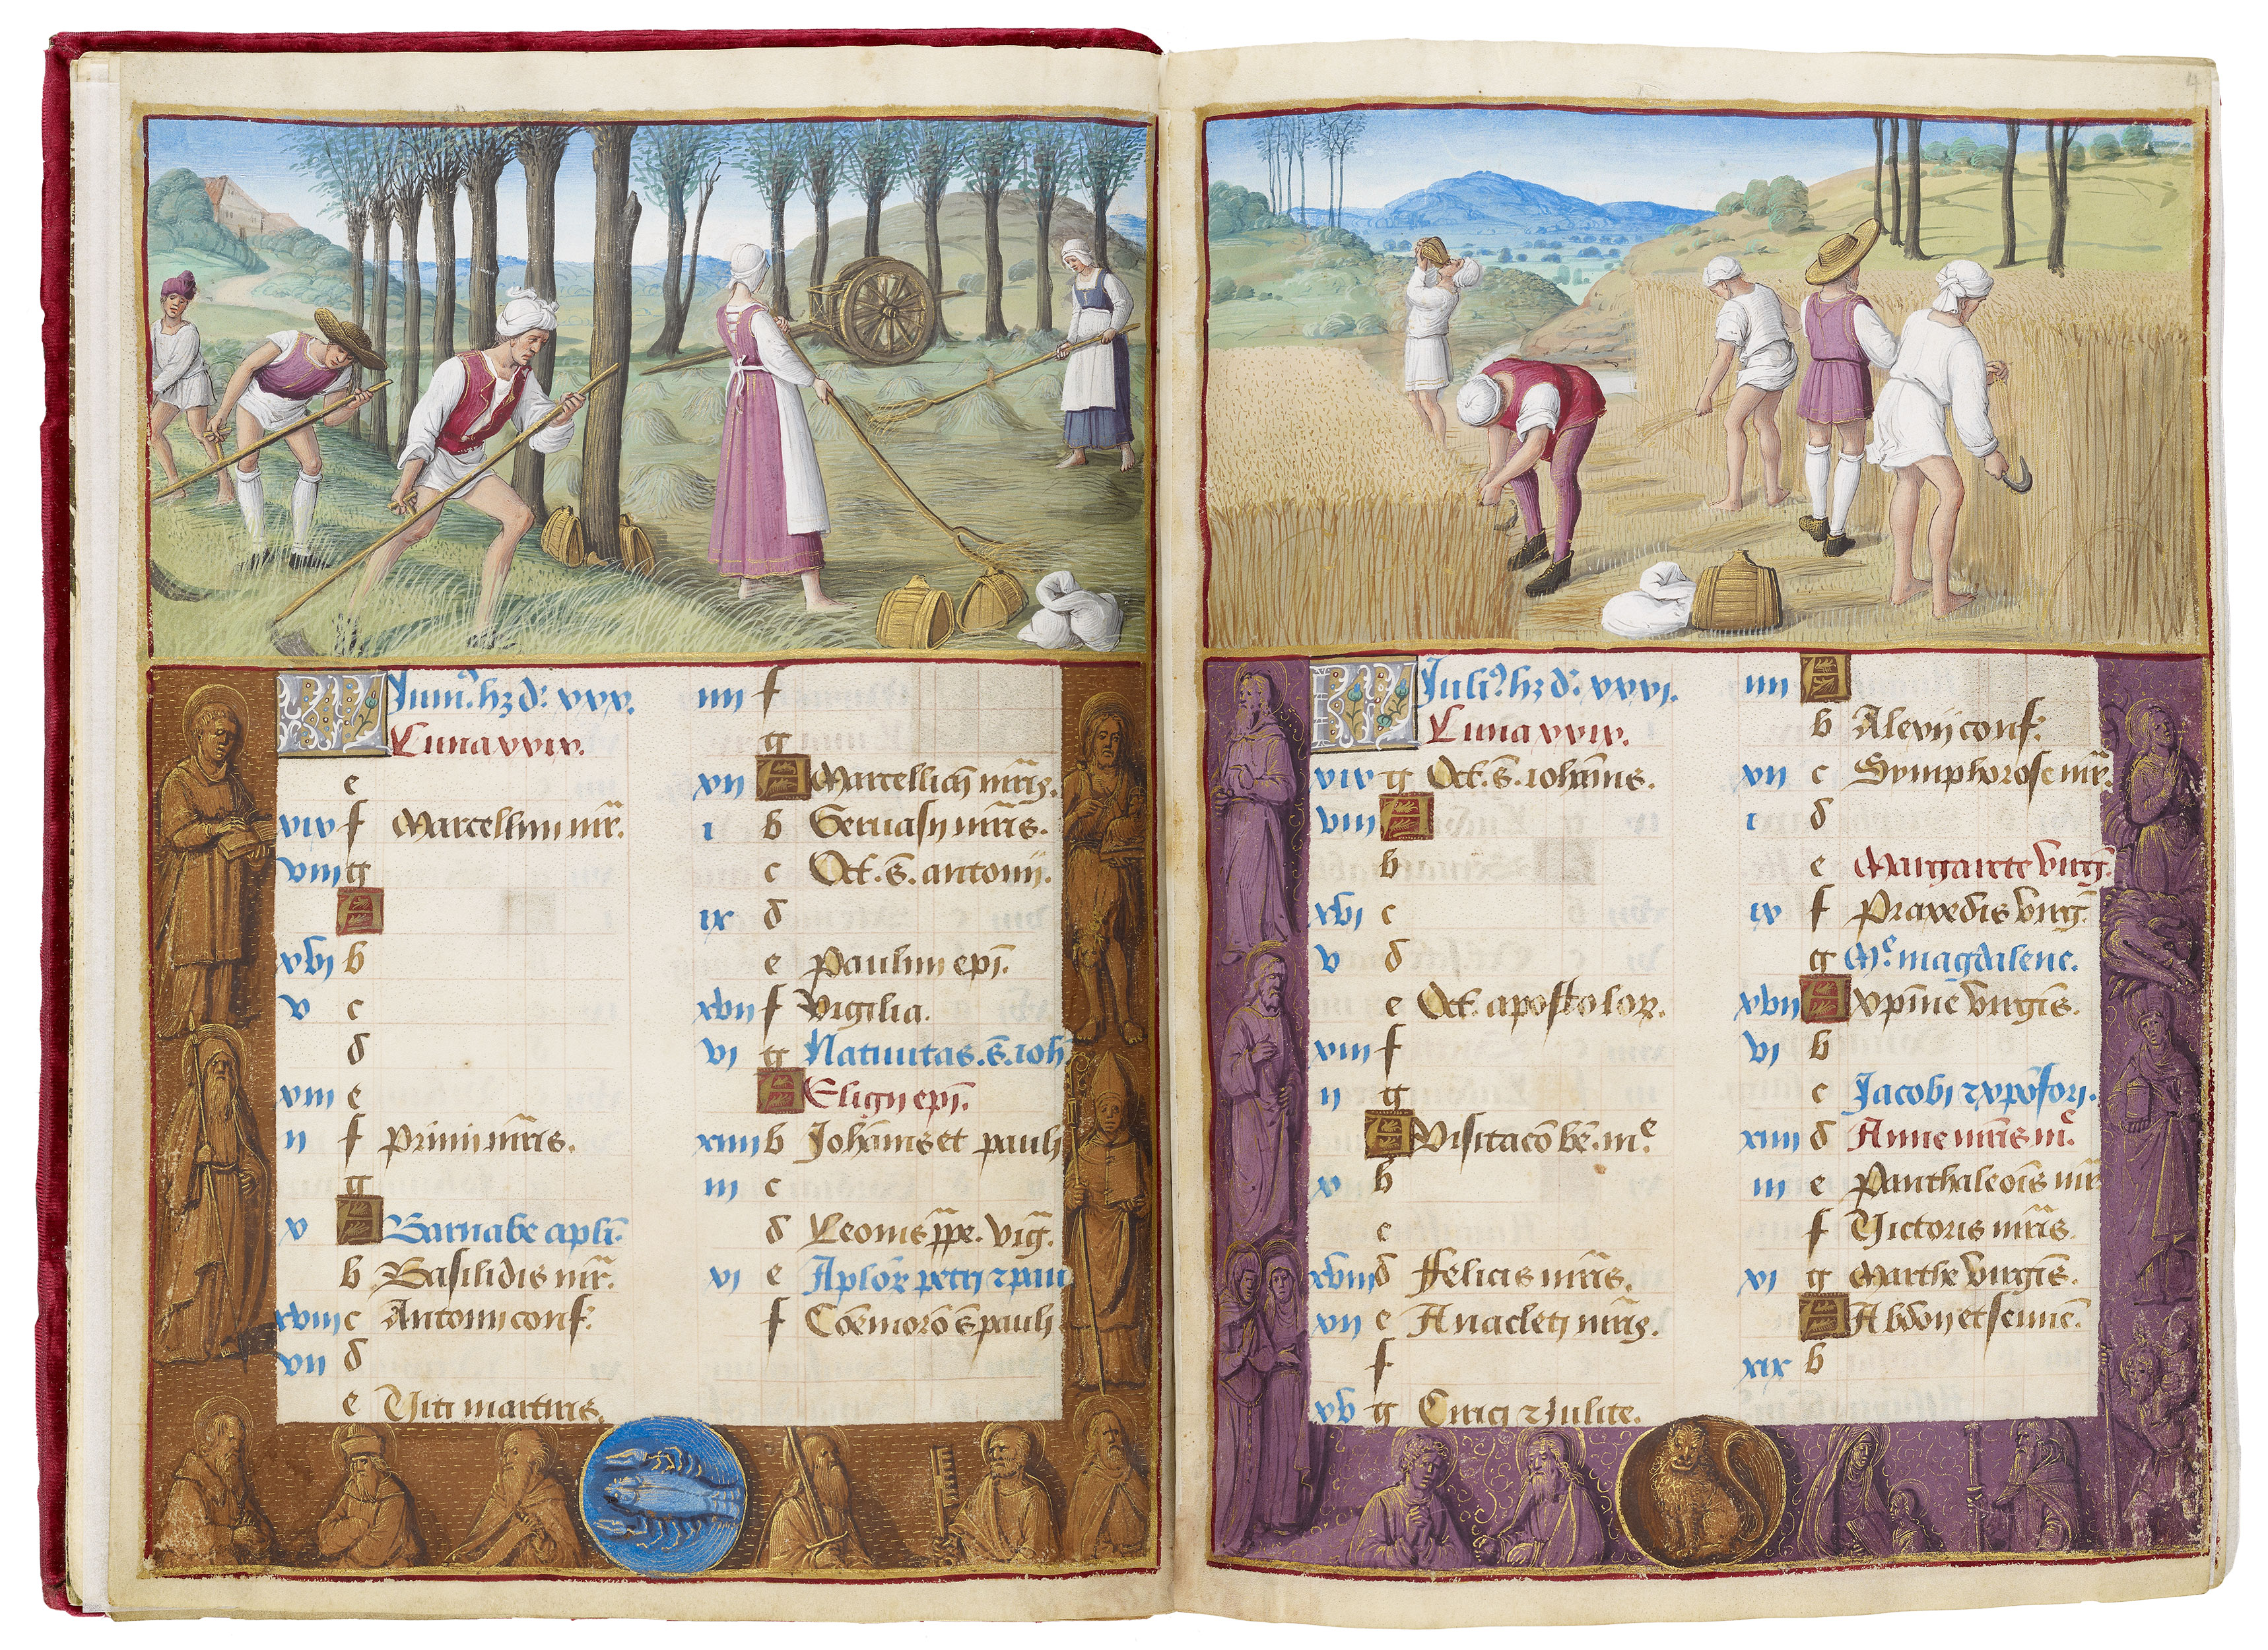 Juniꝰ. hȝ d'. xxx.
Luna xxix.
e
xix f Marcellini mr̄.
viii g
A
xvi b
v c
d
xiii e
ii f Primi mr̄is.
g
x A Barnabe apl̄i.
b Basilidis mr̄.
xviii c Antonij conf.
vii d
e Viti martiris.
iiii f
g
xii A Marcelliani mr̄is.
i b Geruasij mr̄is.
c Oct. s. antonij.
ix d
e Paulini ep̄i.
xvii f Vigilia.
vi g Natiuitas. s. ioh
A Eligij ep̄i.
xiiii b Joh̄anis et pauli
iii c
d Leonis p̄pe. viḡ.
xi e Ap̄lor̄ petri ⁊ pau
f Com̄emorō s pauli
4
Juliꝰ hȝ d'. xxxi.
Luna xxix.
xix g Oct. s. ioh̄anis.
viii A
b
xvi c
v d
e Oct apostoloꝝ.
xiii f
ii g
A Visitacō be. mͤ
x b
c
xviii d Felicis mr̄is.
vii e Anacleti mr̄is.
f
xv g Cirici ⁊ Julite.
iiii A
b Alexij conf.
xii c Symphorose mr̄.
i d
e Margarete virḡ.
ix f Praxedis virḡ.
g Mͤ. magdalene.
xvii A Xp̄ine virginis.
vi b
c Jacobi ⁊ xp̄ofori.
xiiii d Anne mr̄is mͤ.
iii e Panthaleonis mr̄
f Victoris mr̄is.
xi g Marthe virginis.
A Abdon et sennē.
xix b